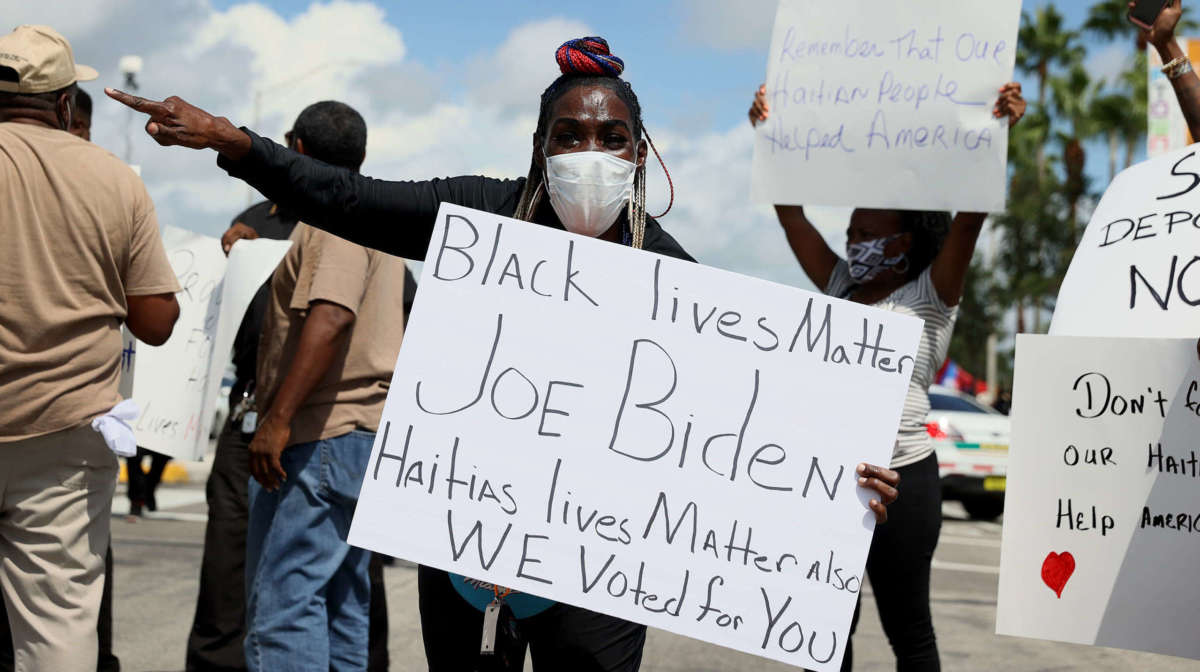 Black lives Matter
JOE BIDEN
HaitiaS lives Matter also
WE Voted for You
Remember That Our
Haitian People
Helped America
DEPO
NO
Don't
our Hait
Help America
Lives